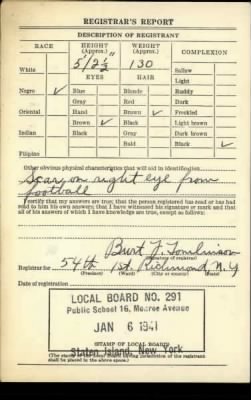 REGISTRAR'S REPORT
DESCRIPTION OF REGISTRANT
RACE HEIGHT (Approx.) WEIGHT (Approx.) COMPLEXION
White 5/2½" 130 Sallow
EYES HAIR Light
Negro ✓ Blue Blonde Ruddy
Gray Red Dark
Oriental Hazel Brown ✓ Freckled
Brown ✓ Black Light brown
Indian Black Gray Dark brown
Bald Black ✓
Filipino
Other obvious physical characteristics that will aid in identification
Scar on right eye from
football
I certify that my answers are true; that the person registered has read or has had
read to him his own answers; that I have witnessed his signature or mark and that
all of his answers of which I have knowledge are true, except as follows:
Burt J. Tomlinson
(Signature of registrar)
Registrar for 54th 1st. Richmond, N.Y
(Precinct) (Ward) (City or county)
Date of registration
LOCAL BOARD NO. 291
Public School 16, Monroe Avenue
JAN 6 1941
STAMP OF LOCAL BOARD
Staten Island, New York
(The stamp of the Local Board having jurisdiction of the registrant
shall be placed in the above space.)